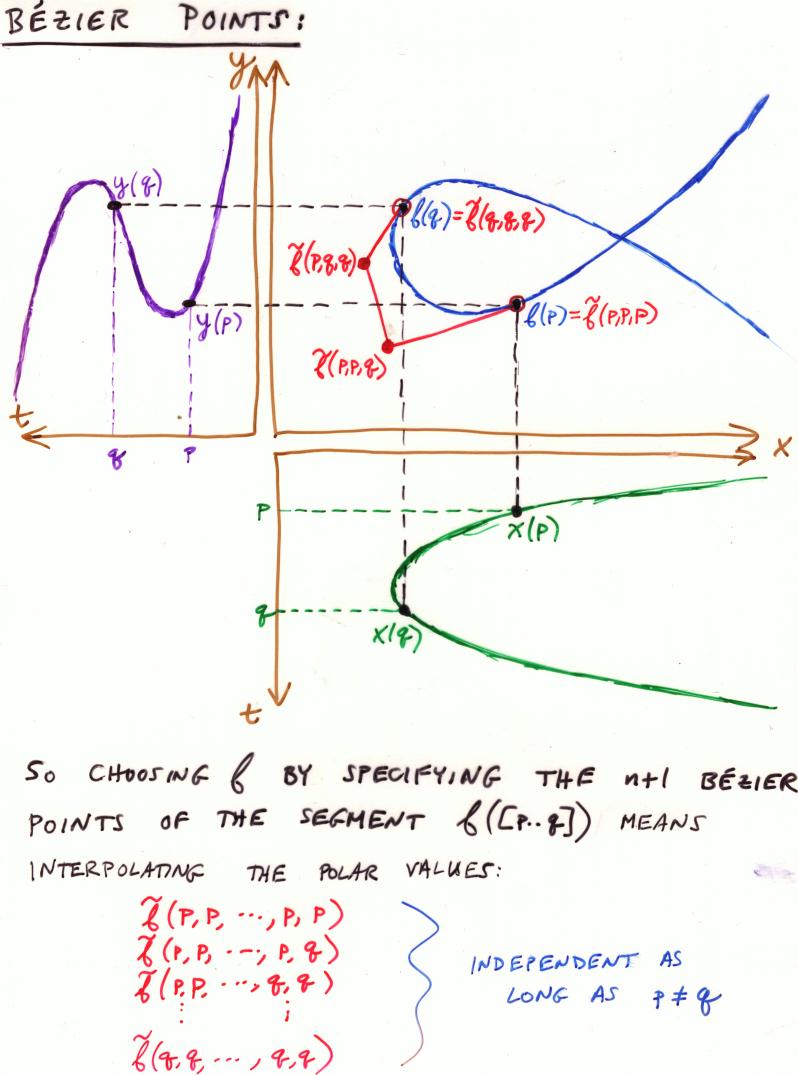 BÉZIER POINTS:
y
y(q)
f(q)=f̃(q,q,q)
f̃(p,q,q)
y(p)
f(p)=f̃(p,p,p)
f̃(p,p,q)
t
q
p
x
p
x(p)
q
x(q)
t
SO CHOOSING f BY SPECIFYING THE n+1 BÉZIER
POINTS OF THE SEGMENT f([p..q]) MEANS
INTERPOLATING THE POLAR VALUES:
f̃(p,p, ..., p,p)
f̃(p,p, ..., p,q)
f̃(p,p, ..., q,q)
⋮ ⋮
f̃(q,q, ..., q,q)
INDEPENDENT AS
LONG AS p≠q